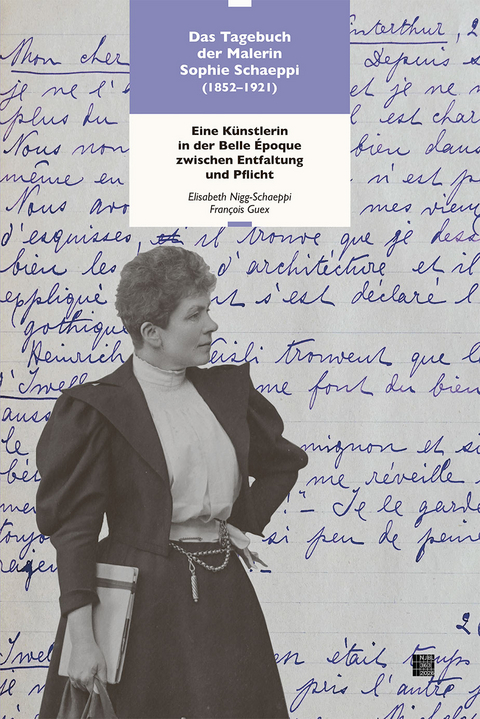 Das Tagebuch
der Malerin
Sophie Schaeppi
(1852–1921)
Eine Künstlerin
in der Belle Époque
zwischen Entfaltung
und Pflicht
Elisabeth Nigg-Schaeppi
François Guex
Winterthur, 2
Mon cher Depuis
je ne l'é et je ne
plus du l est char
Nous non bien dans
même en n'est p
Nous avo mes vieu
d'esquisses, il trouve que je dess
bien les d'architécture et il
expliqué t s'est déclaré l
gothique
Heinrich eisli trouvent que le
d'Iwel me font du bien
auss
le mignon et si
bé me réveille
me Je le garde
toujo si peu de peine
rage
2
Iwel en était temps
je n pris l'autre